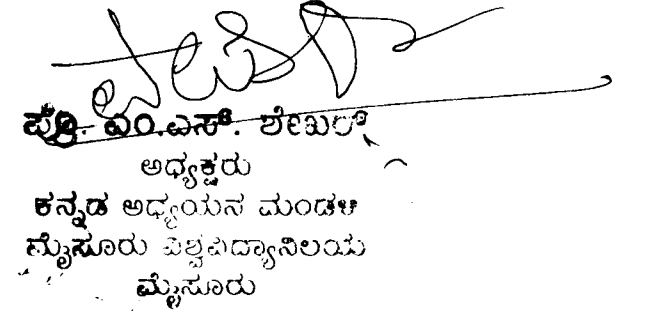 ಪ್ರೊ. ಎಂ.ಎಸ್. ಶೇಖರ್
ಅಧ್ಯಕ್ಷರು
ಕನ್ನಡ ಅಧ್ಯಯನ ಮಂಡಳಿ
ಮೈಸೂರು ವಿಶ್ವವಿದ್ಯಾನಿಲಯ
ಮೈಸೂರು